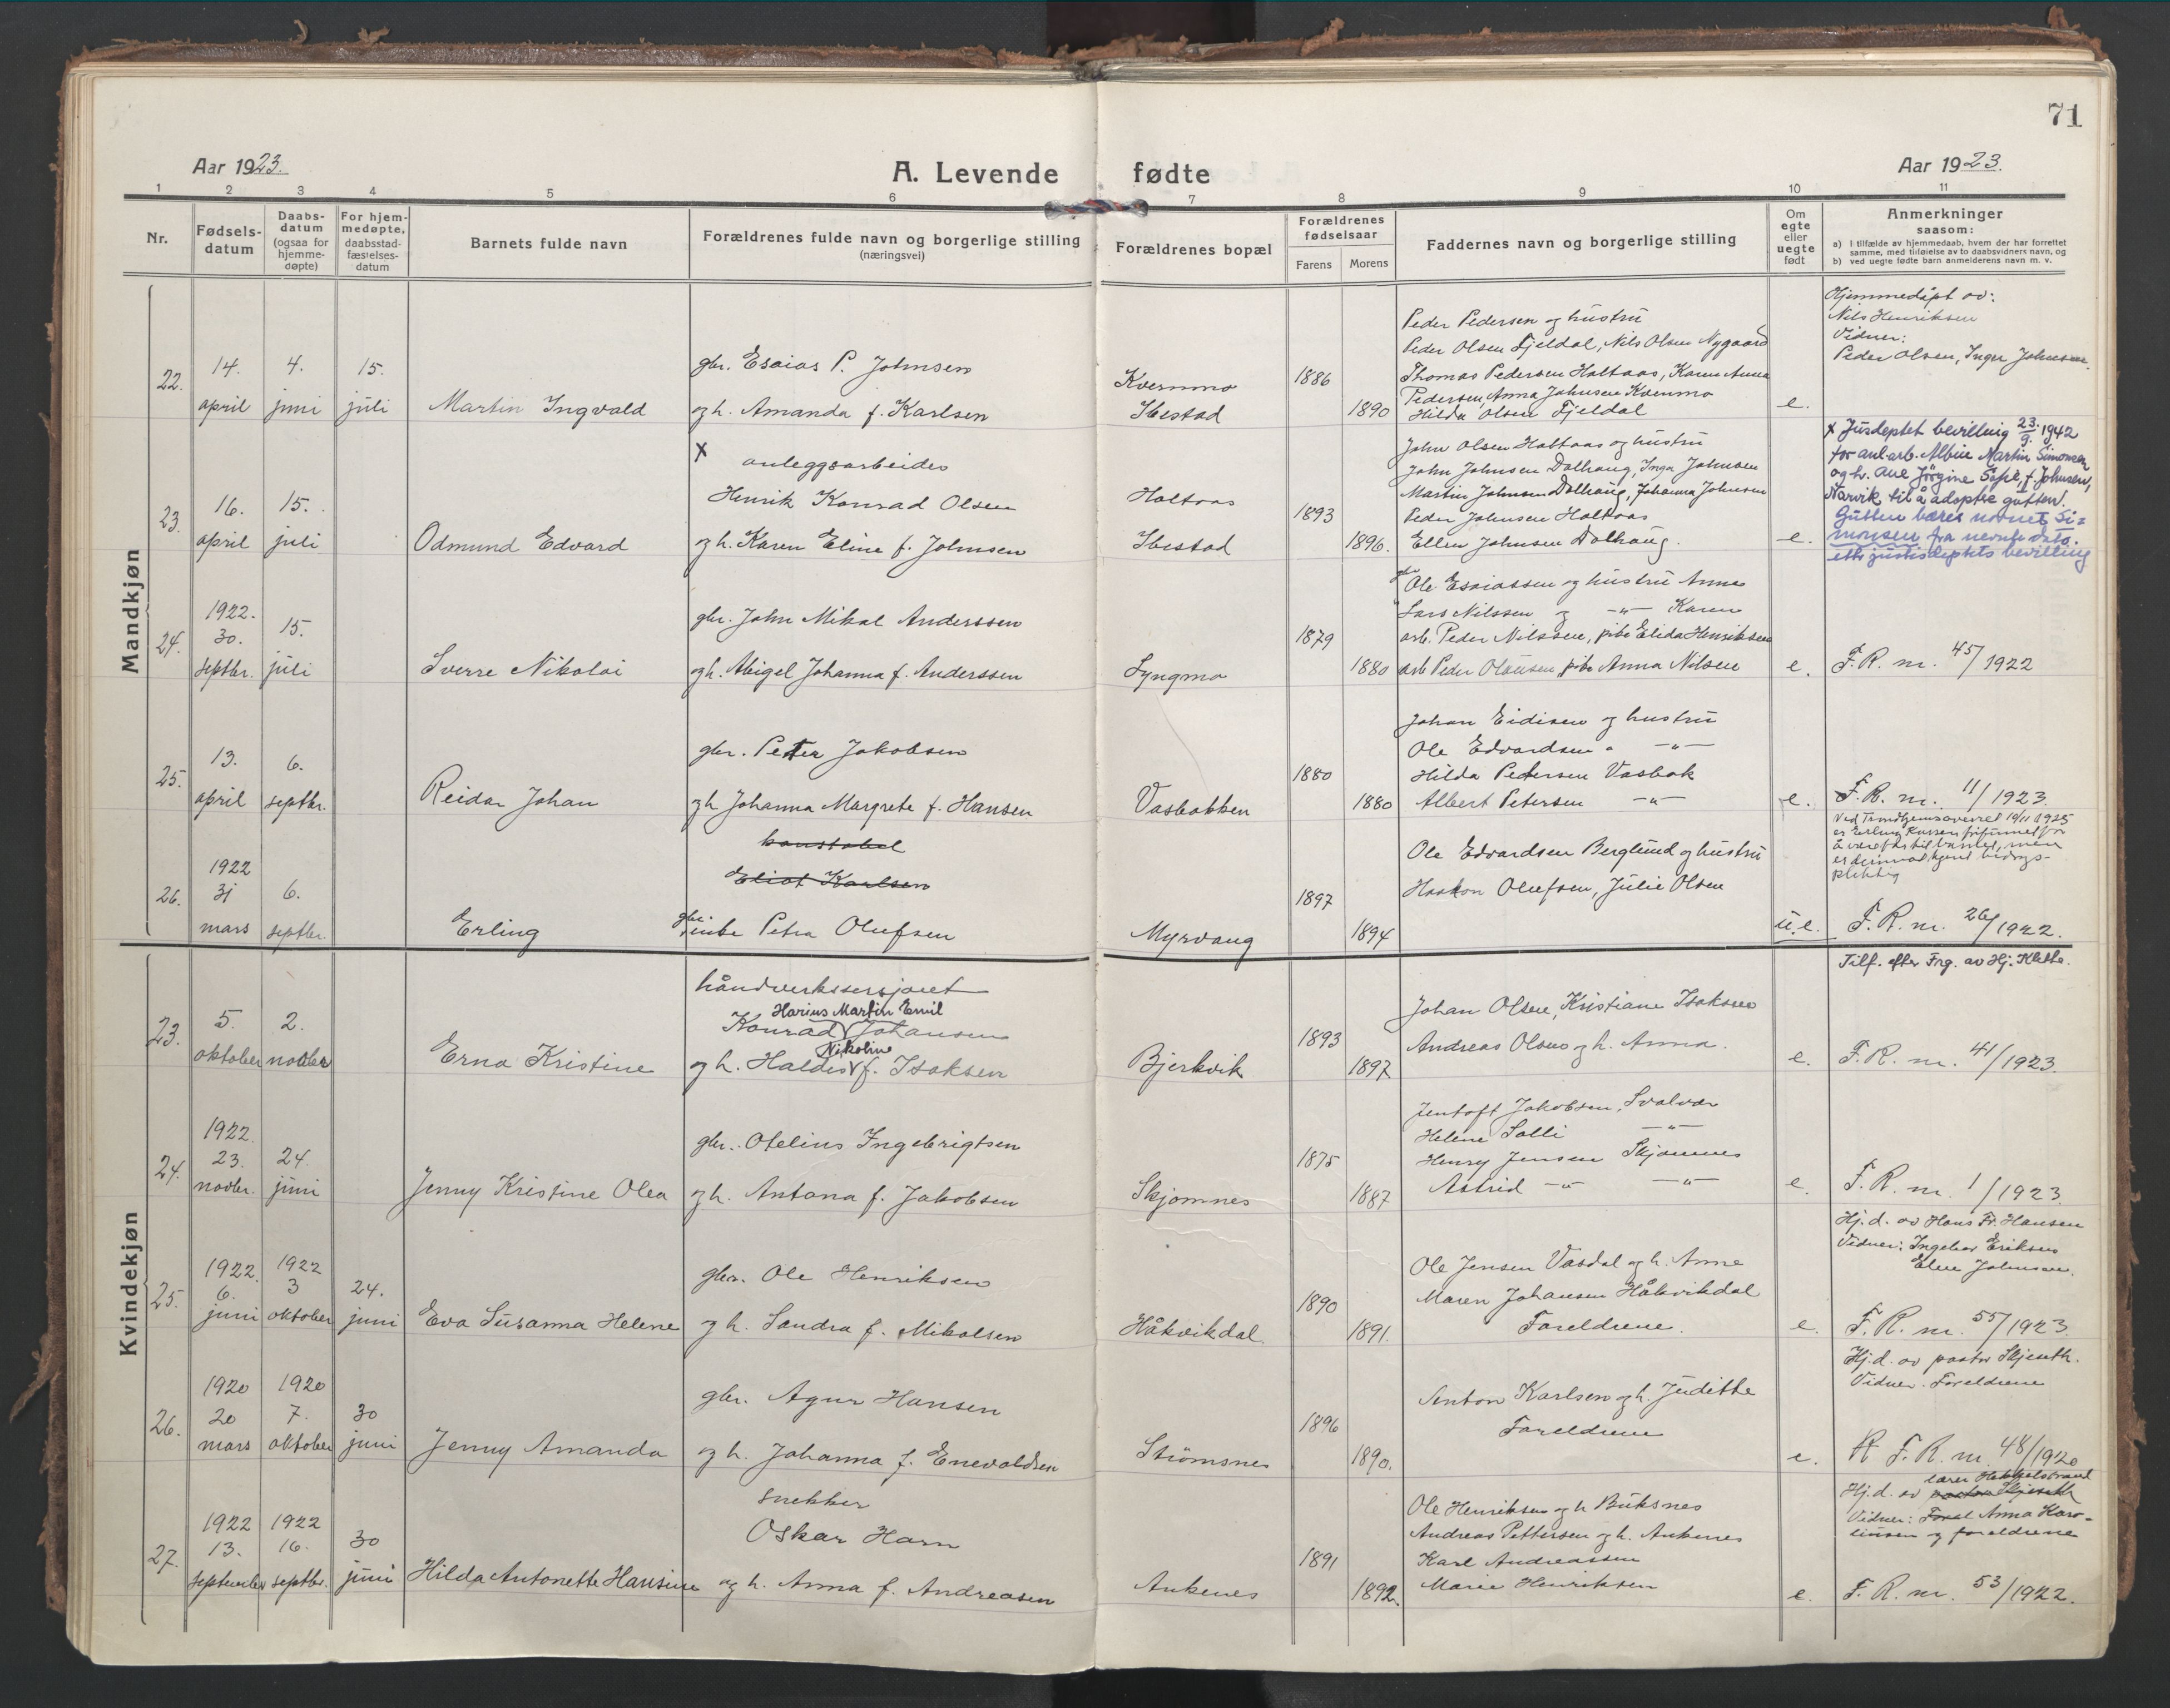 71
Aar 1923.
A. Levende fødte
Aar 1923.
1 2 3 4 5 6 7 8 9 10 11
Nr.
Fødsels-
datum
Daabs-
datum
(ogsaa for
hjemme-
døpte)
For hjem-
medøpte,
daabsstad-
fæstelses-
datum
Barnets fulde navn
Forældrenes fulde navn og borgerlige stilling
(næringsvei)
Forældrenes bopæl
Forældrenes
fødselsaar
Farens Morens
Faddernes navn og borgerlige stilling
Om
egte
eller
uegte
født
Anmerkninger
saasom:
a) I tilfælde av hjemmedaab, hvem der har forrettet
samme, med tilføielse av to daabsvidners navn, og
b) ved uegte fødte barn anmelderens navn m. v.
Mandkjøn
22.
14.
april
4.
juni
15.
juli
Martin Ingvald
gbr. Esaias P. Johnsen
og h. Amanda f. Karlsen
Kvernmo
Ibestad
1886
1890
Peder Pedersen og hustru
Peder Olsen Fjeldal, Nils Olsen Nygaard
Thomas Pedersen Holtaas, Karen Anna
Pedersen, Anna Johnsen Kvenmo
Hilda Olsen Fjeldal
e.
Hjemmedøpt av:
Nils Henriksen
Vidner:
Peder Olsen, Inger Johnsen.
23.
16.
april
15.
juli
Odmund Edvard
x
anleggsarbeider
Henrik Konrad Olsen
og h. Karen Eline f. Johnsen
Holtaas
Ibestad
1893
1896.
John Olsen Holtaas og hustru
John Johnsen Dalhaug, Inga Johnsen
Martin Johnsen Dalhaug, Johanna Johnsen
Peder Johnsen Holtaas
Ellen Johnsen Dalhaug.
e.
x Jusdeptet bevilling 23/9. 1942
for anl.arb. Albin Martin Simonsen
og h. Ane Jörgine Sofie, f. Johnsen,
Narvik til å adoptere gutten.
Gutten bærer navnet Si=
monsen fra nevnte dato.
etter justisdeptets bevilling
24.
1922.
30.
septbr.
15.
juli
Sverre Nikolai
gbr. John Mikal Anderssen
og h. Abigel Johanna f. Anderssen
Lyngmo
1879
1880
gbr Ole Esaiassen og hustru Anne
" Lars Nilssen og -"- Karen
arb. Peder Nilssen, pike Elida Henriksen
arb Peder Olausen, pike Anna Nilsen
e.
F.R. nr. 45/1922
25.
13.
april
6.
septbr.
Reidar Johan
gbr. Peter Jakobsen
og h Johanna Margrete f. Hansen
Vasbakken
1880
1880
Johan Eidisen og hustru
Ole Edvardsen " -"-
Hilda Petersen Vasbak
Albert Petersen -"-
e.
F.R. nr. 11/1923.
26.
1922
31
mars
6.
septbr.
Erling
konstabel
Eliot Karlsen
gbr. pike Petra Olufsen
Myrvang
1897
1894
Ole Edvardsen Berglund og hustru
Haakon Olufsen, Julie Olsen
u.e.
er Erling
å være far til barnet, men
plektig
F.R. nr. 26/1922.
Kvindekjøn
23.
5.
oktober
2.
novbr
Erna Kristine
håndverkssersjant
Harius Martin Emil
Konrad Johansen
Nikoline
og h. Haldis f. Isaksen
Bjerkvik
1893
1897
Johan Olsen, Kristiane Isaksen
Andreas Olsen og h. Anna.
e.
Tilf. efter Frg. av Hj. Kletta.
F.R. nr. 41/1923.
24.
1922.
23.
novbr.
24.
juni
Jenny Kristine Olea
gbr. Otelius Ingebrigtsen
og h. Antona f. Jakobsen
Skjomnes
1875
1887
Jentoft Jakobsen, Svalvær
Helene Solli -"-
Henry Jensen Skjomnes
Astrid -"- -"-
e.
F.R. nr. 1/1923.
25.
1922.
6.
juni
1922
3
oktober
24.
juni
Eva Susanna Helene
gbr. Ole Henriksen
og h. Sandra f. Mikalsen
Håkvikdal
1890
1891.
Ole Jensen Vasdal og h. Anne
Maren Johansen Håkvikdal
Foreldrene.
e.
Hj.d. av Hans Fr. Hansen
Vidner: Ingebor Eriksen
Elen Johnsen.
F.R. nr. 55/1923.
26.
1920
20
mars
1920
7.
oktober
30
juni
Jenny Amanda
gbr. Agnr Hansen
og h. Johanna f. Enevoldsen
Strømsnes
1896
1890.
Anton Karlsen og h. Judithe
Foreldrene
e.
Hj.d. av pastor Skjeseth.
Vidner. Foreldrene
F.R. nr. 48/1920
27.
1922
13.
september
1922
16.
septbr.
30
juni
Hilda Antonette Hansine
snekker
Oskar Harn
og h. Anna f. Andreasen
Ankenes
1891
1892.
Ole Henriksen og h Buksnes
Andreas Pettersen og h. Ankenes
Karl Andreassen
Marie Henriksen
e.
Hj.d. av pastor Skjeseth
Vidner: Forel Anna Karo-
linsen og foreldrene
F.R. nr. 53/1922.